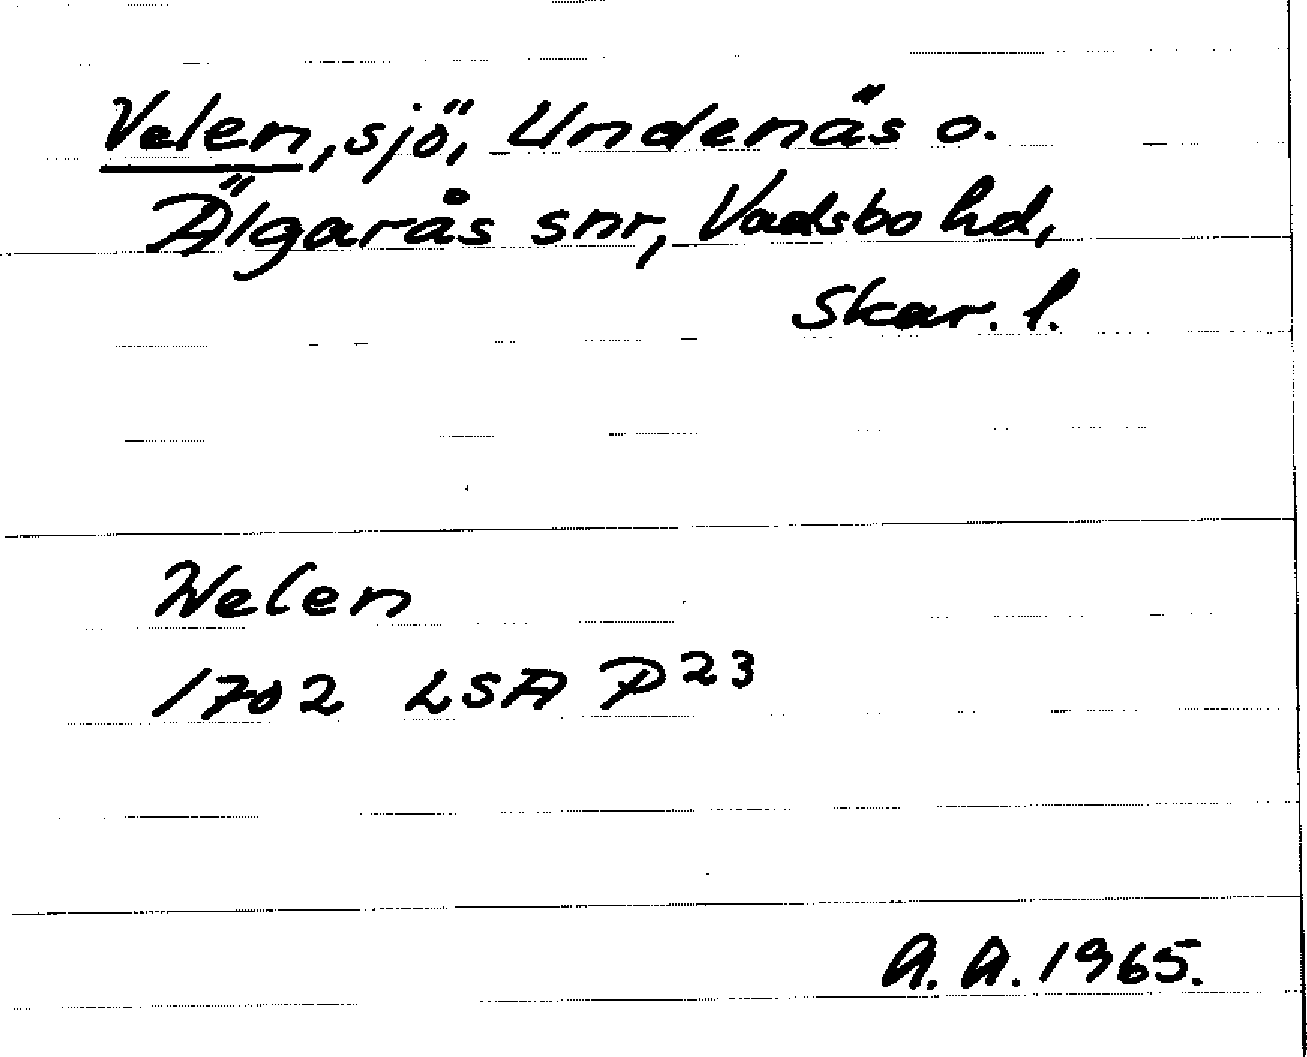 Velen, sjö, Undenäs o.
Älgarås snr, Vadsbo hd,
Skar. l.
Welen
1702 LSA P23
A. A. 1965.